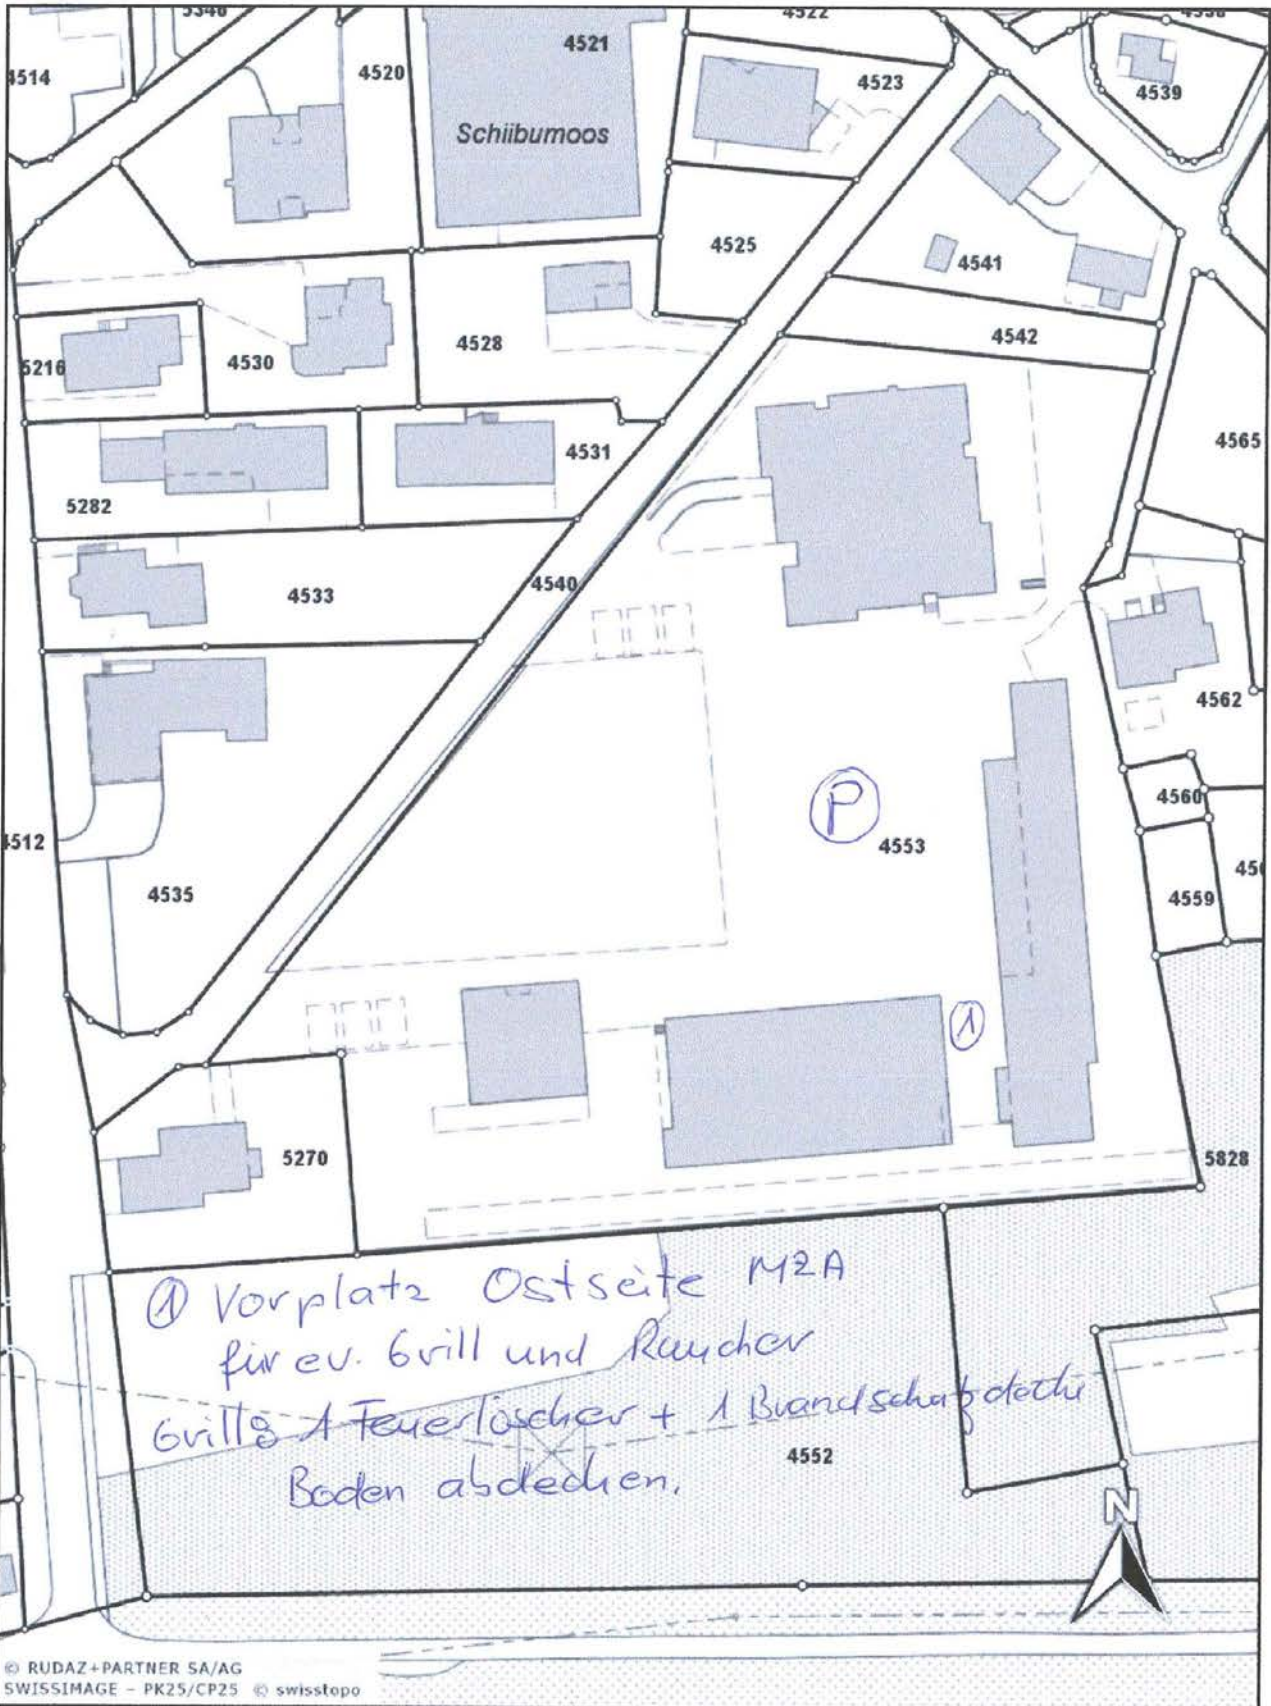 5346
4522
4538
4514
4520
4521
4523
4539
Schiibumoos
4525
4541
4542
5216
4530
4528
4565
4531
5282
4533
4540
4562
P
4560
4512
4553
4535
4559
1
5270
5828
① Vorplatz Ostseite MZA
für ev. Grill und Raucher
Grill 1 Feuerlöscher + 1 Brandschutzdecke
4552
Boden abdecken.
N
© RUDAZ+PARTNER SA/AG
SWISSIMAGE - PK25/CP25 © swisstopo